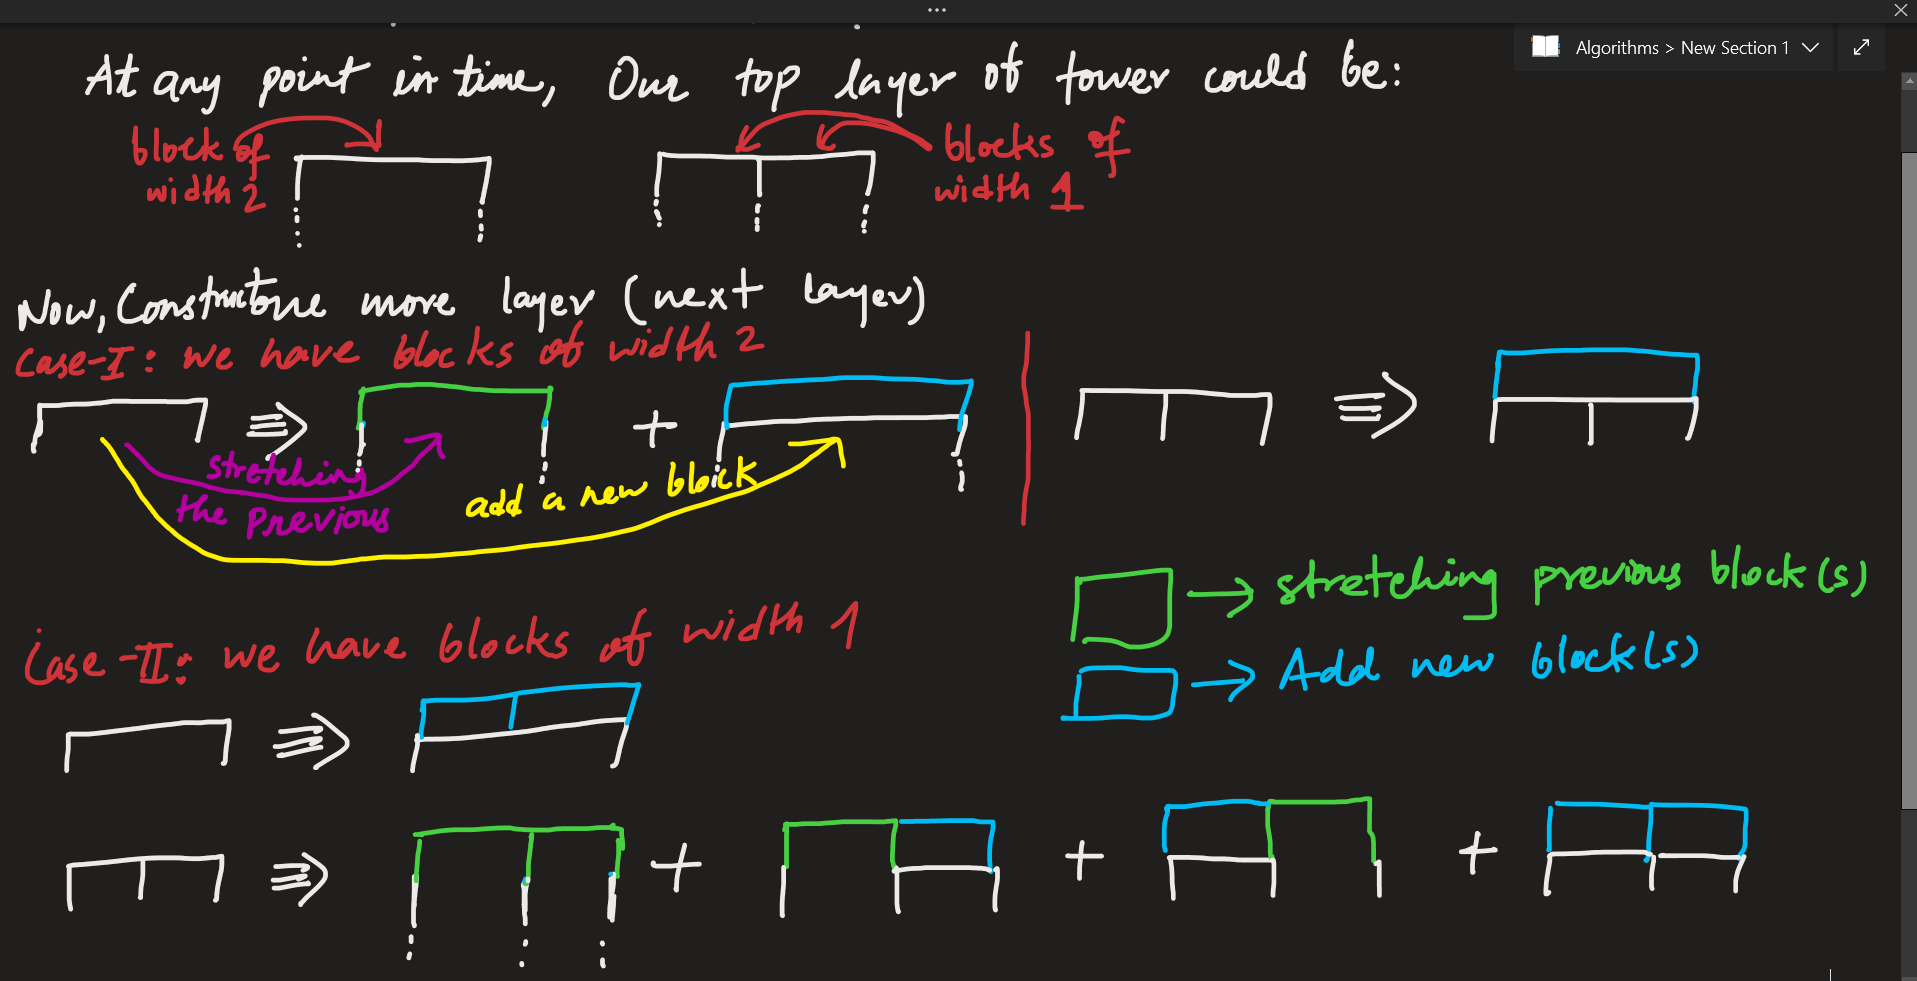 Algorithms > New Section 1
At any point in time, Our top layer of tower could be:
block of
width 2
blocks of
width 1
Now, Construct one more layer (next layer)
Case-I: we have blocks of width 2
stretching
the previous
add a new block
stretching previous block(s)
Add new block(s)
Case-II: we have blocks of width 1